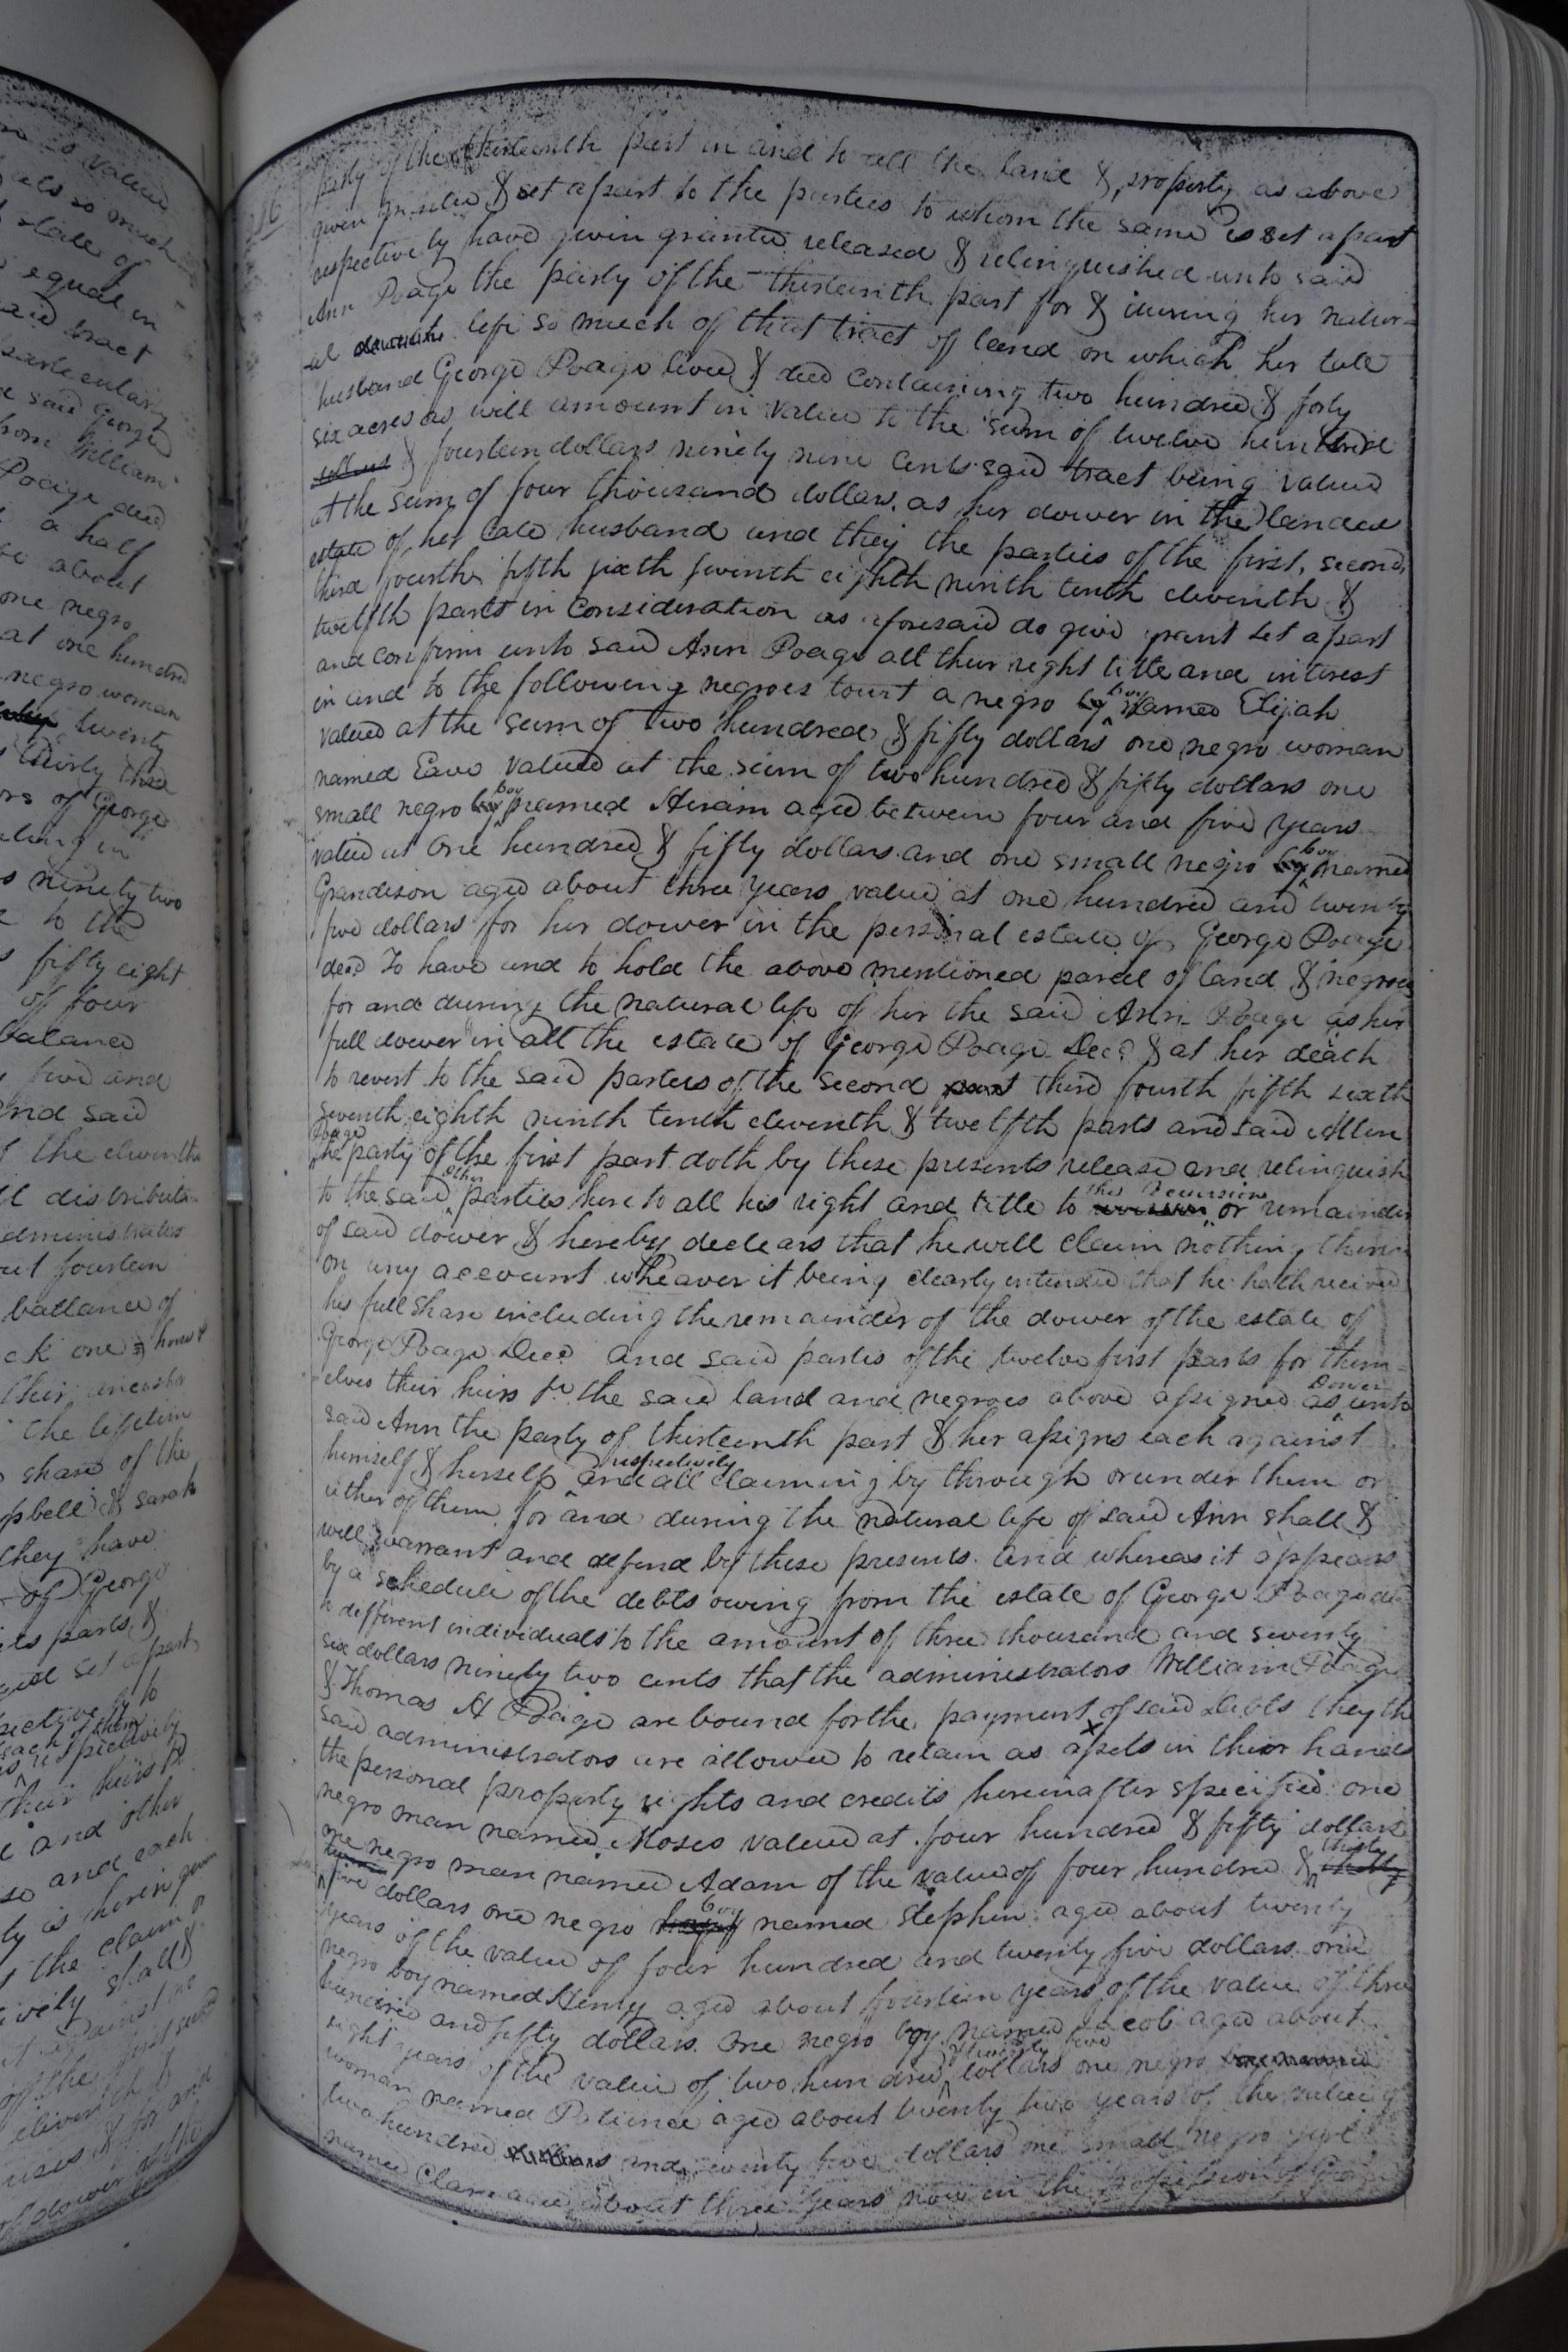 n is valued
els so much
state of
equal in
said tract
particularly
said George
from William
Poage decd
a half
about
one negro
at one hundred
negro woman
twenty
thirty three
ors of George
ninety two
to the
fifty eight
of four
balance
five and
and said
of the eleventh
ll distribute
administrators
fourteen
ballance of
ck one
their
the lifetim
share of the
pbell & Sarah
they have
of George
parts &
set apart
to
respectively
their heirs
and other
so and each
ty is herein given
the claim
tively shall &
against
of the first
eleventh &
uses & for and
of dower
16
party of the thirteenth part in and to all the land & property as above
given granted & set apart to the parties to whom the same is set apart
respectively have given granted released & relinquished unto said
Ann Poage the party of the thirteenth part for & during her natur-
al life so much of that tract of land on which her late
husband George Poage lived & died containing two hundred & forty
six acres as will amount in value to the sum of twelve hundred
& fourteen dollars ninety nine cents said tract being valued
at the sum of four thousand dollars. as her dower in the landed
estate of her late husband and they the parties of the first, second,
third fourth, fifth sixth seventh eighth ninth tenth eleventh &
twelfth parts in consideration as aforesaid do give grant set apart
and confirm unto said Ann Poage all their right title and interest
in and to the following negroes towit a negro boy named Elijah
valued at the sum of two hundred & fifty dollars one negro woman
named Eave valued at the sum of two hundred & fifty dollars one
small negro boy named Hiram aged between four and five years
valued at One hundred & fifty dollars and one small negro boy named
Grandison aged about three years value at one hundred and twenty
five dollars for her dower in the personal estate of George Poage
decd To have and to hold the above mentioned parcel of land & negroes
for and during the natural life of her the said Ann Poage as her
full dower in all the estate of George Poage Decd & at her death
to revert to the said parties of the second third fourth fifth sixth
seventh eighth ninth tenth eleventh & twelfth parts and said Allen
Poage
the party of the first part doth by these presents release and relinquish
to the said other parties here to all his right and title to the reversion or remainder
of said dower & hereby declears that he will claim nothing
on any account wheaver it being clearly intended that he hath recived
his full share including the remainder of the dower of the estate of
George Poage Decd and said partis of the twelve first parts for them-
elves their heirs &c the said land and negroes above assigned as Dower unto
said Ann the party of thirteenth part & her assigns each against
himself & herself respectively and all claiming by through or under them or
either of them for and during the natural life of said Ann shall &
will warrant and defend by these presents. And whereas it appears
by a schedule of the debts owing from the estate of George Poage
to different individuals to the amount of three thousand and seventy
six dollars ninety two cents that the administrators William Poage
& Thomas H Poage are bound for the payment of said Debts they the
said administrators are allowed to retain as assets in their hands
the personal property rights and credits hereinafter specified one
negro man named Moses valued at four hundred & fifty dollars
one negro man named Adam of the value of four hundred & thirty
five dollars one negro boy named Stephen aged about twenty
years of the value of four hundred and twenty five dollars one
negro boy named Henry aged about fourteen years of the value of three
hundred and fifty dollars. One negro boy named Jacob aged about
eight years of the value of two hundred & twenty five dollars one negro
woman named Patience aged about twenty two years of the value of
two hundred and twenty five dollars one small negro girl
named Clara aged about three years now in the possession of George